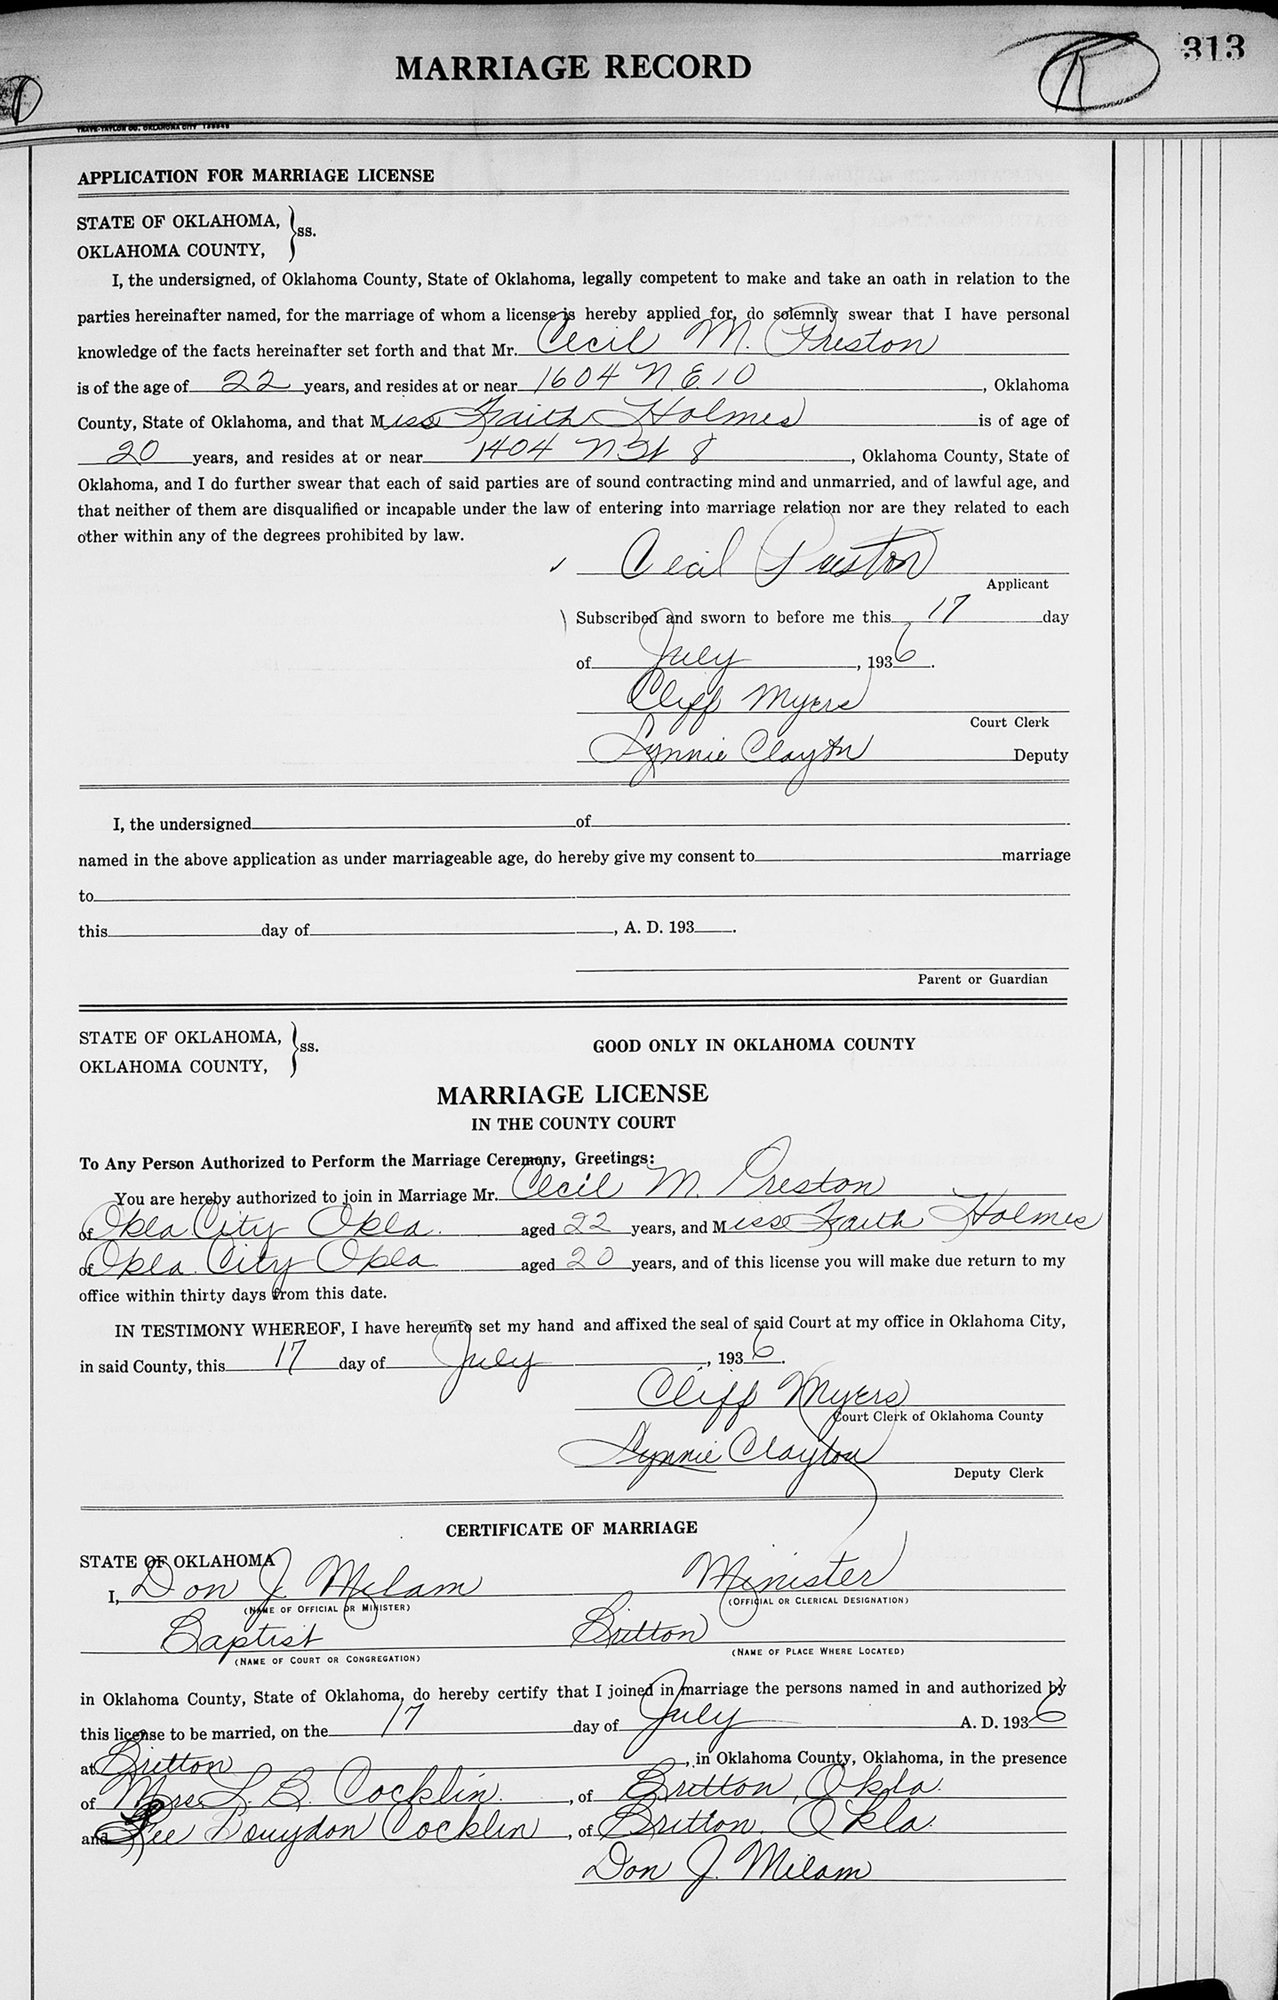 MARRIAGE RECORD
R
313
TRAVE-TAYLOR CO. OKLAHOMA CITY
APPLICATION FOR MARRIAGE LICENSE
STATE OF OKLAHOMA,
OKLAHOMA COUNTY, } ss.
I, the undersigned, of Oklahoma County, State of Oklahoma, legally competent to make and take an oath in relation to the
parties hereinafter named, for the marriage of whom a license is hereby applied for, do solemnly swear that I have personal
knowledge of the facts hereinafter set forth and that Mr. Cecil M. Preston
is of the age of 22 years, and resides at or near 1604 N.E. 10, Oklahoma
County, State of Oklahoma, and that Miss Faith Holmes is of age of
20 years, and resides at or near 1404 N 8, Oklahoma County, State of
Oklahoma, and I do further swear that each of said parties are of sound contracting mind and unmarried, and of lawful age, and
that neither of them are disqualified or incapable under the law of entering into marriage relation nor are they related to each
other within any of the degrees prohibited by law.
Cecil Preston
Applicant
Subscribed and sworn to before me this 17 day
of July, 1936.
Cliff Myers
Court Clerk
Lynnie Clayton Deputy
I, the undersigned of
named in the above application as under marriageable age, do hereby give my consent to marriage
to
this day of , A. D. 193 .
Parent or Guardian
STATE OF OKLAHOMA,
OKLAHOMA COUNTY, } ss.
GOOD ONLY IN OKLAHOMA COUNTY
MARRIAGE LICENSE
IN THE COUNTY COURT
To Any Person Authorized to Perform the Marriage Ceremony, Greetings:
You are hereby authorized to join in Marriage Mr. Cecil M. Preston
of Okla City Okla. aged 22 years, and Miss Faith Holmes
of Okla. City Okla aged 20 years, and of this license you will make due return to my
office within thirty days from this date.
IN TESTIMONY WHEREOF, I have hereunto set my hand and affixed the seal of said Court at my office in Oklahoma City,
in said County, this 17 day of July, 1936.
Cliff Myers
Court Clerk of Oklahoma County
Lynnie Clayton
Deputy Clerk
CERTIFICATE OF MARRIAGE
STATE OF OKLAHOMA
I, Don J. Milam Minister
(NAME OF OFFICIAL OR MINISTER) (OFFICIAL OR CLERICAL DESIGNATION)
Baptist Britton
(NAME OF COURT OR CONGREGATION) (NAME OF PLACE WHERE LOCATED)
in Oklahoma County, State of Oklahoma, do hereby certify that I joined in marriage the persons named in and authorized by
this license to be married, on the 17 day of July A. D. 1936
at Britton, in Oklahoma County, Oklahoma, in the presence
of Mrs. L. B. Cocklin., of Britton, Okla.
and Lee Cocklin, of Britton, Okla.
Don J. Milam